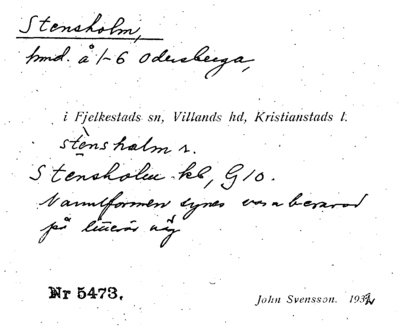 Stensholm,
hmd. å 1-6 Odersberga,
i Fjelkestads sn, Villands hd, Kristianstads l.
stènshalm r.
Stensholm kb, G10.
Namnformen synes vara beroend
på litterär väg
Nr 5473.
John Svensson. 1932